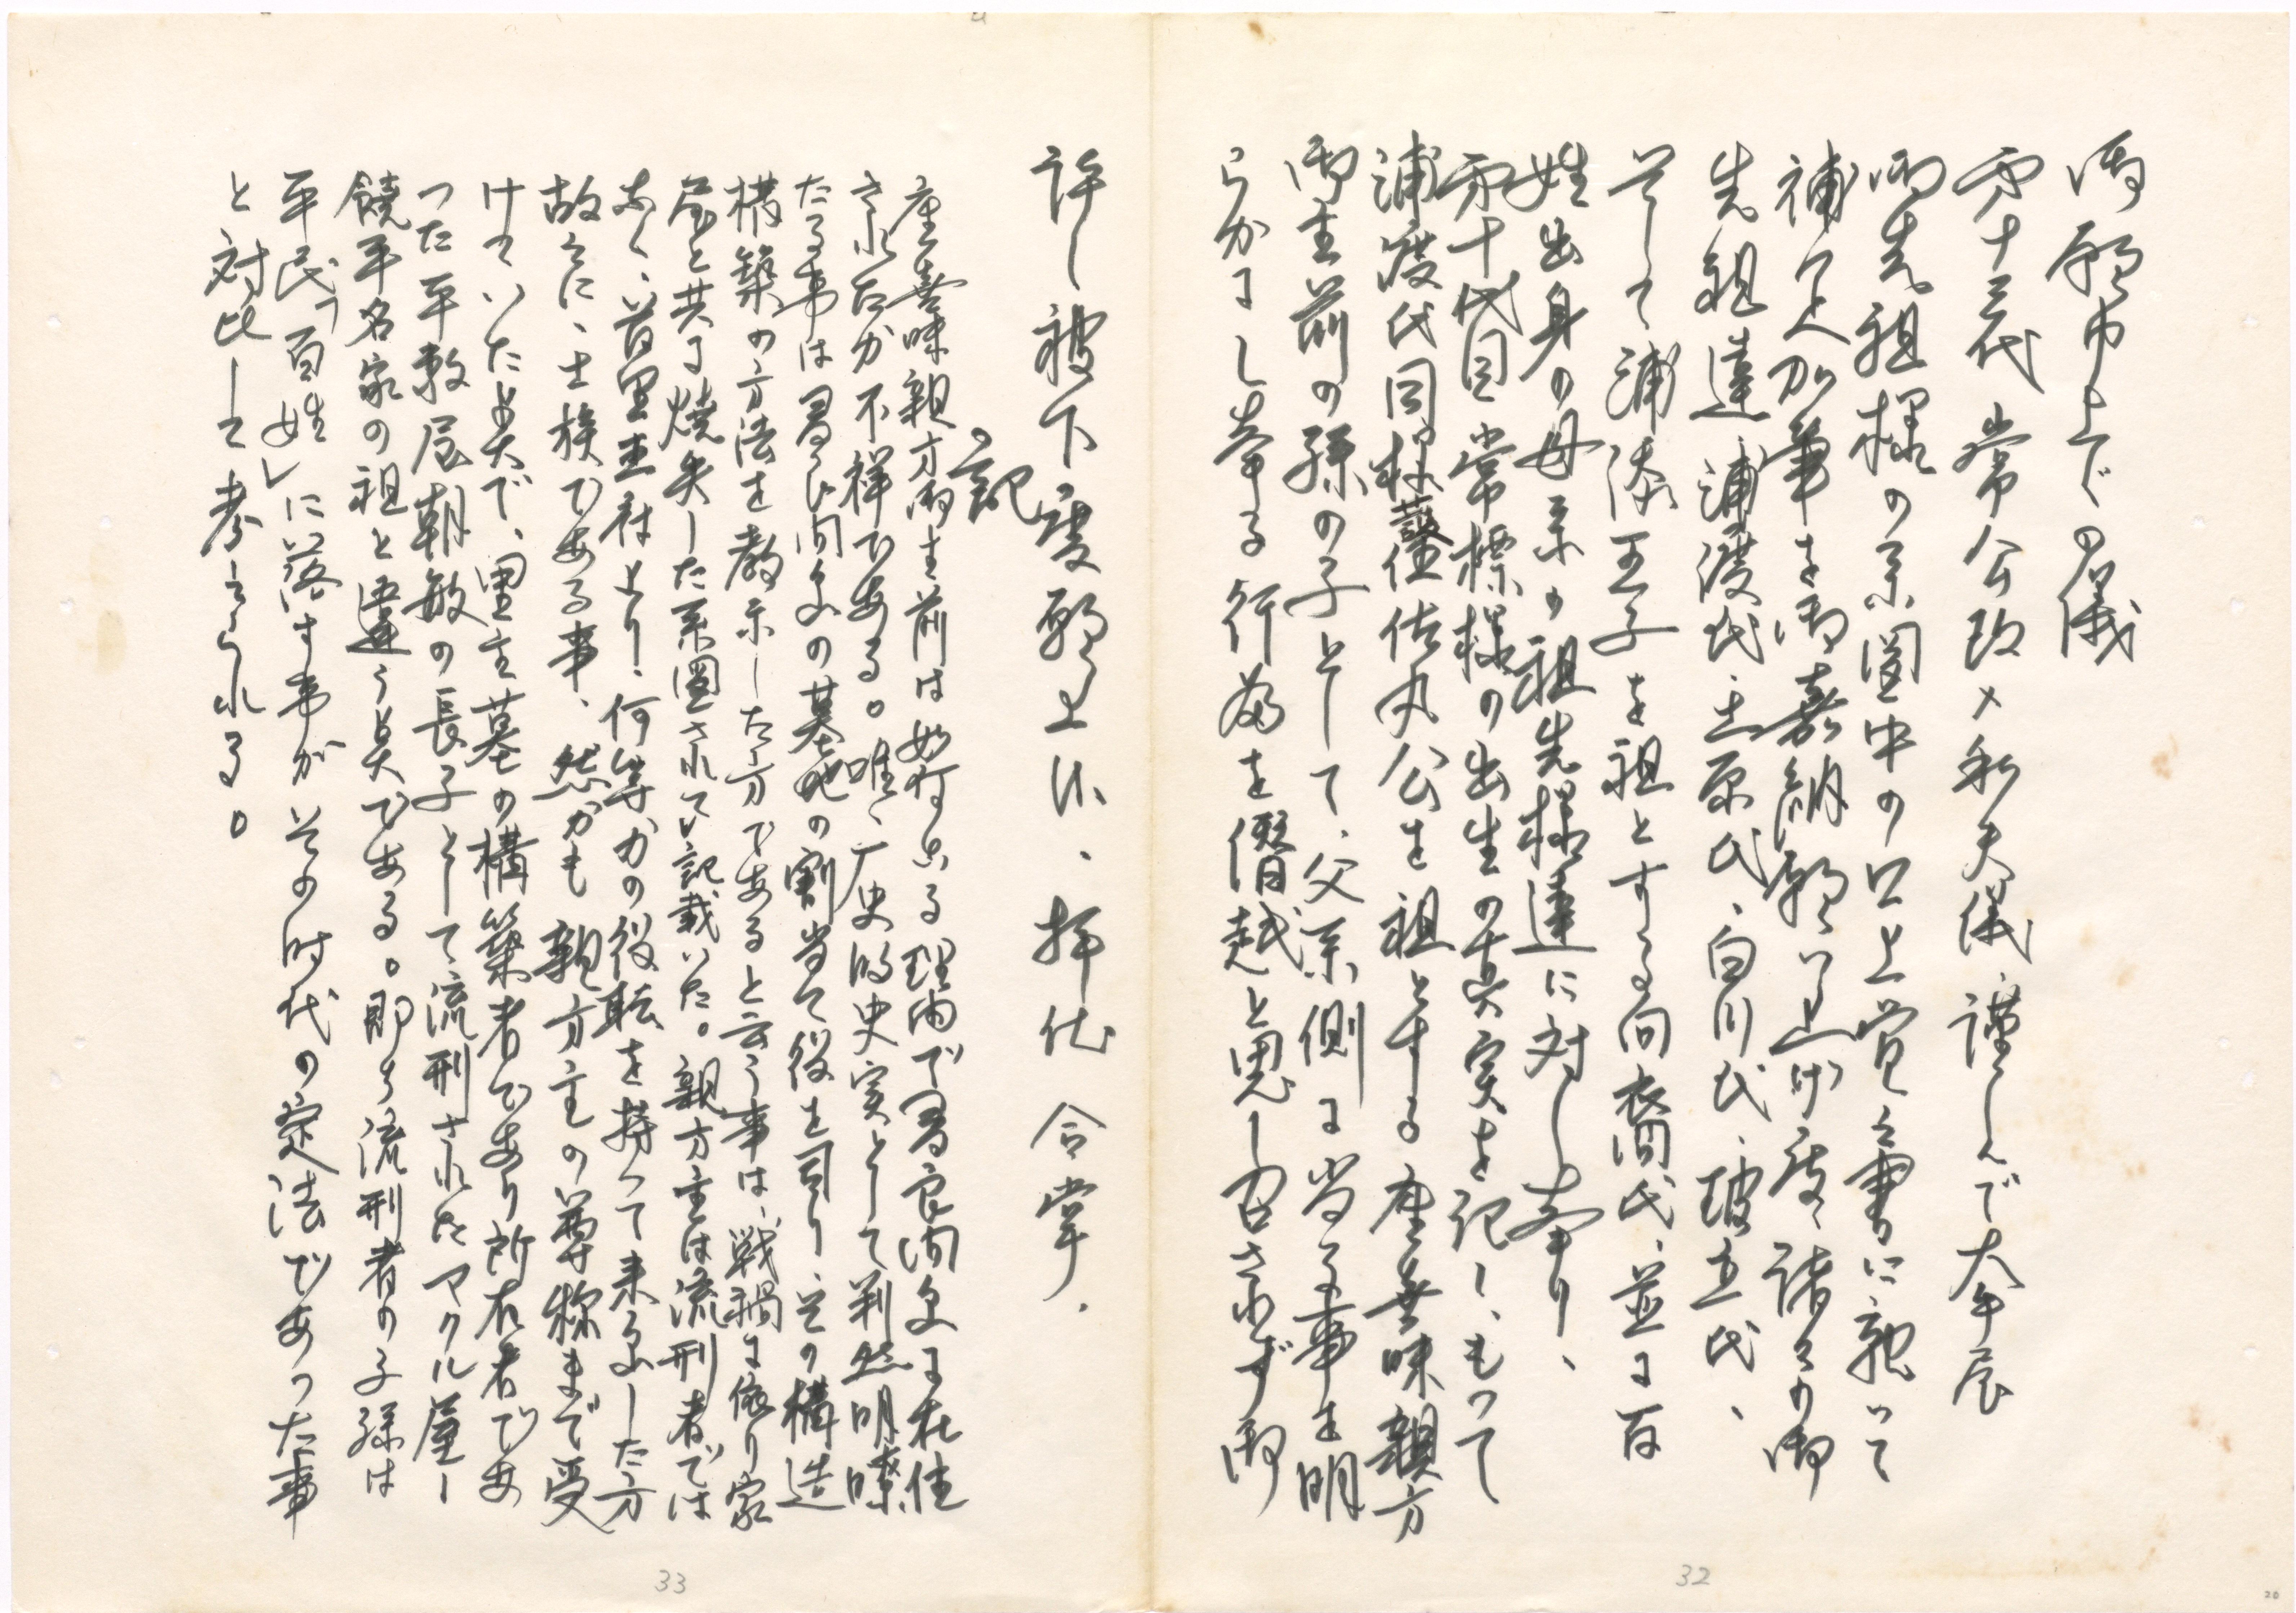 御願申上での儀
第十三代常公改メ和夫儀、謹しんで大年辰
御先祖様の系図中の口上覚え書に記って
補足加筆を御嘉納願い上げ度、諸々の御
先祖達、浦渡氏、土原氏、白川氏、玻立氏、
そして浦添王子を祖とする向裔氏、並に百
姓出身の母系の祖先様達に対し奉り、
第十代目常標様の出生の真実を記し、もって
浦渡氏同様佐丸公を祖とする座喜味親方
御主前の孫の子として、父系側に当る事を明
らかにし奉る行為を僭越と思し召されず御
許し被下度願上候、拝伏合掌。
記
座喜味親方御主前は如何なる理由で君良間島に在住
されたか不祥である。唯、歴史的史実として判然明瞭
たる事は君良間島の墓地の割当て役を司り、その構造
構築の方法を教示した方であると云う事は、戦禍に依り家
屋と共に焼失した系図されて記載いた。親方主は流刑者では
なく、首里王府より、何等かの役転を持って来島した方
故えに、士族である事、然かも親方主の尊称まで受
けていた点で、里主墓の構築者であり所有者であ
った平敷屋朝敏の長子として流刑されたマクル屋ー
饒平名家の祖と違う点である。即ち流刑者の子孫は
平民「百姓」に落す事がその時代の定法であった事
と対比して考えられる。
33
32
20